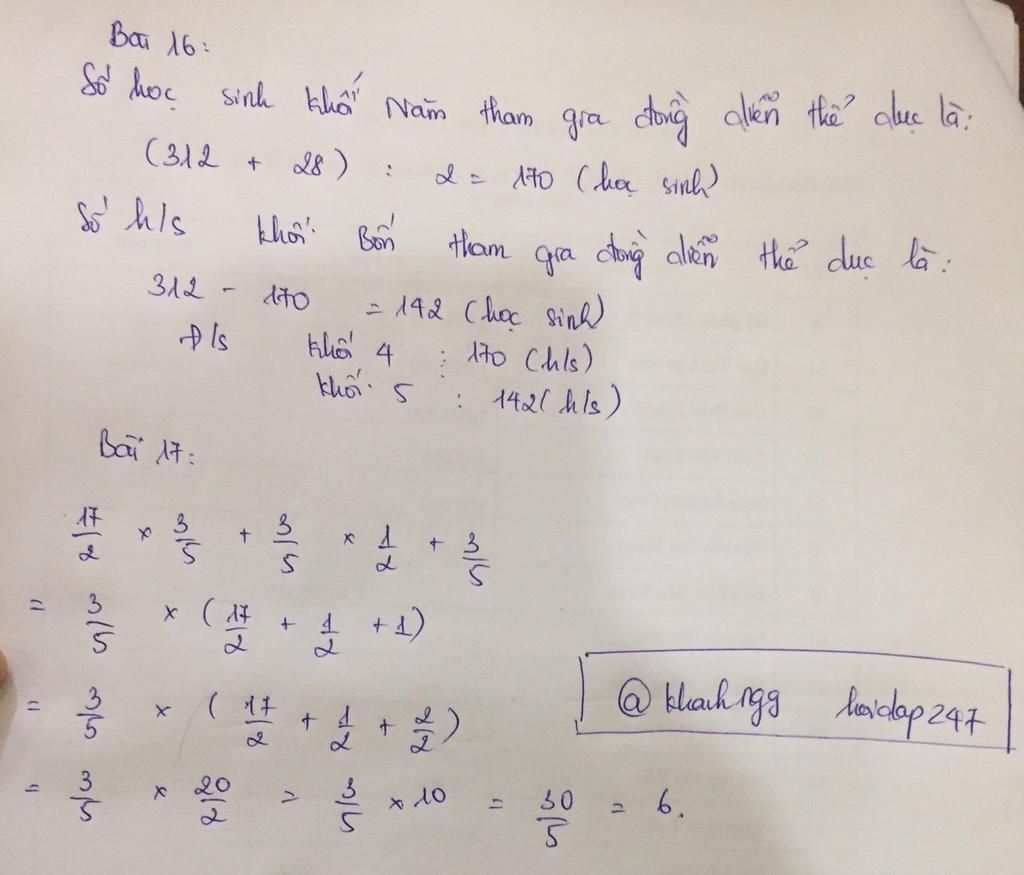 Bài 16:
Số học sinh khối Năm tham gia đồng diễn thể dục là:
(312 + 28) : 2 = 170 (học sinh)
Số h/s khối Bốn tham gia đồng diễn thể dục là:
312 - 170 = 142 (học sinh)
Đ/s khối 4 : 170 (h/s)
khối 5 : 142 (h/s)
Bài 17:
17/2 × 3/5 + 3/5 × 1/2 + 3/5
= 3/5 × (17/2 + 1/2 + 1)
= 3/5 × (17/2 + 1/2 + 2/2)
= 3/5 × 20/2 = 3/5 × 10 = 30/5 = 6.
@khanhngg hoidap247